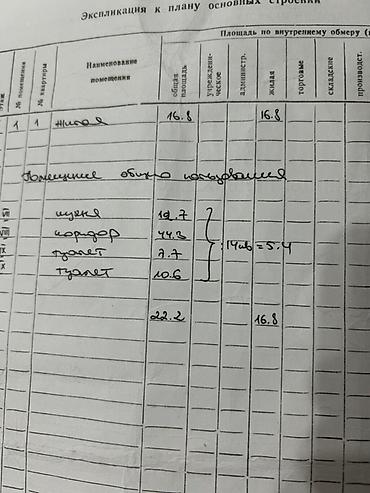 Экспликация к плану основных строений
Площадь по внутреннему обмеру
этаж
№ помещения
№ квартиры
Наименование помещения
общая площадь
учрежденческое
администр.
жилая
торговые
складские
производст.
1 1 жилая 16.8 16.8
Помещение общего пользования
VII кухня 12.7
VIII коридор 44.3
IX туалет 7.7 = 5.4
X туалет 10.6
22.2 16.8